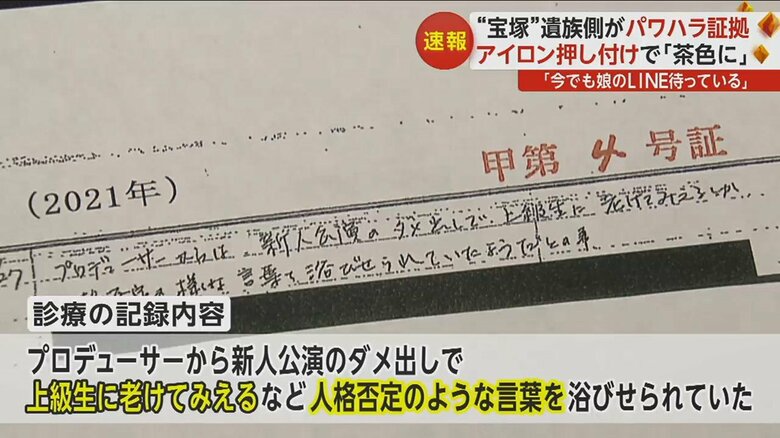 速報
“宝塚”遺族側がパワハラ証拠
アイロン押し付けで「茶色に」
「今でも娘のLINE待っている」
甲第4号証
(2021年)
27
プロデューサーからは 新人公演のダメ出しで 上級生に 老けてみえるとか
の様な 言葉を浴びせられていたようだ との事
診療の記録内容
プロデューサーから新人公演のダメ出しで
上級生に老けてみえるなど人格否定のような言葉を浴びせられていた